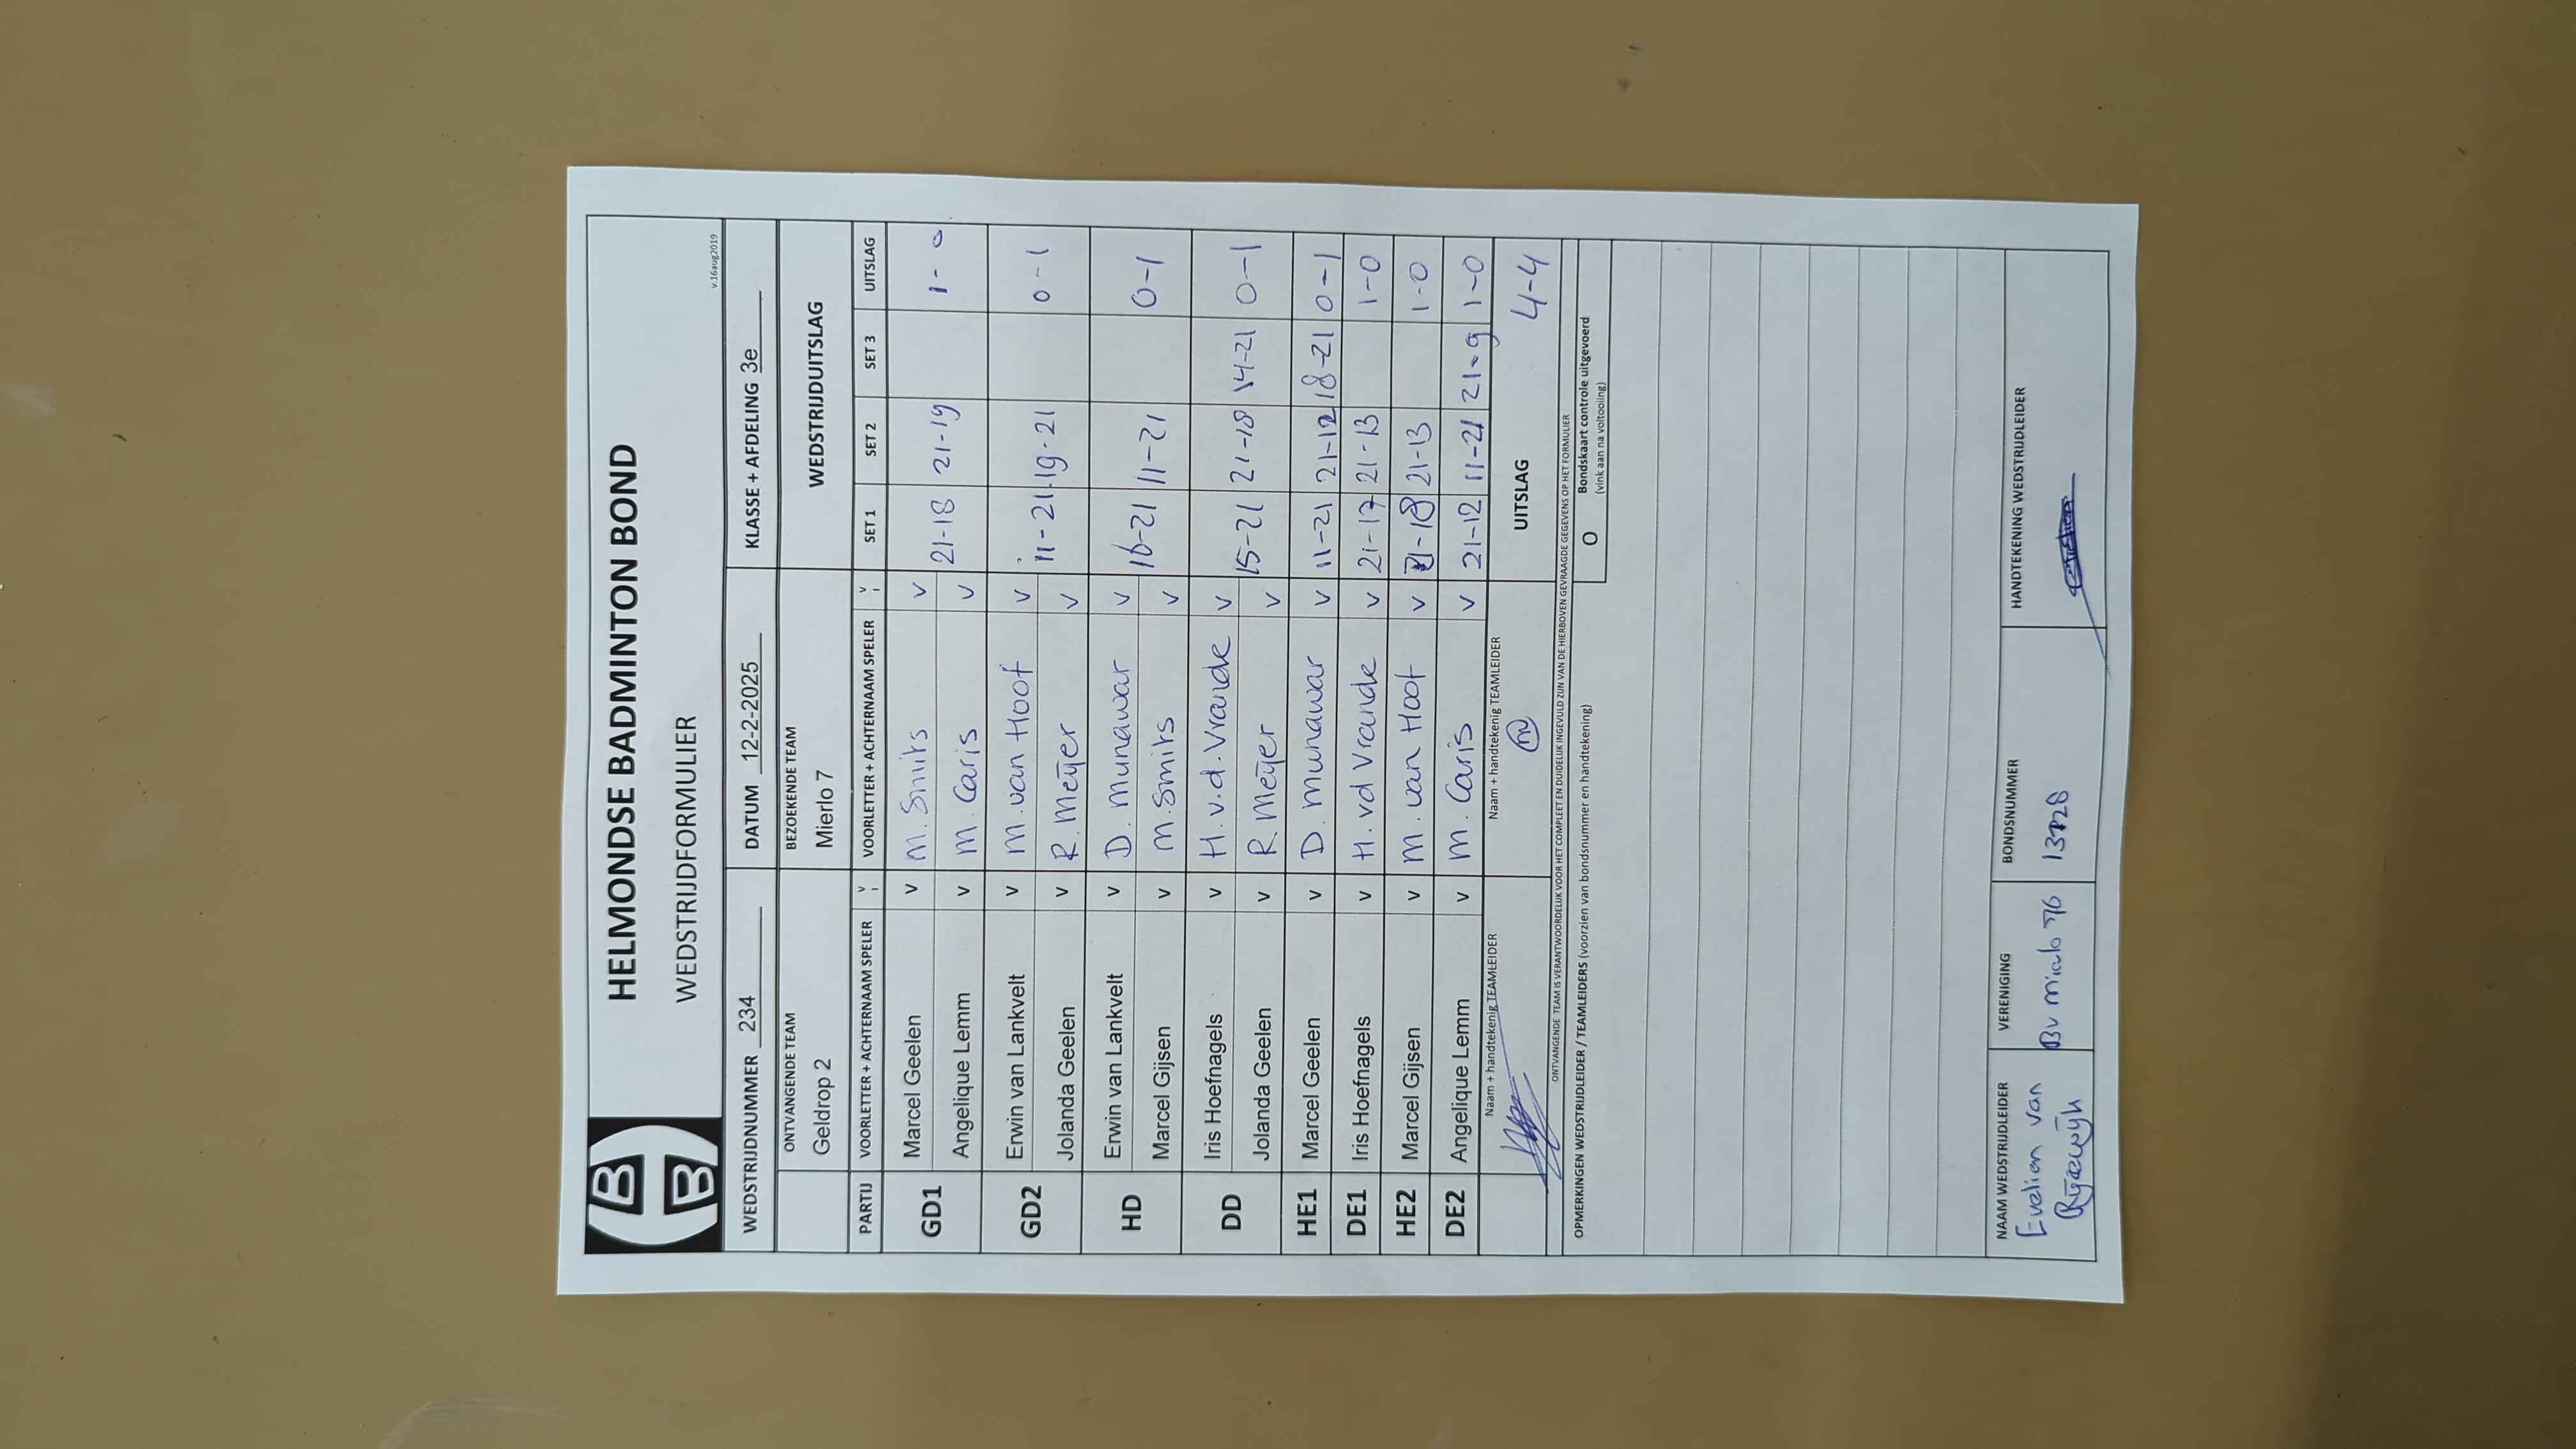 HELMONDSE BADMINTON BOND
WEDSTRIJDFORMULIER
v.16aug2019
WEDSTRIJDNUMMER 234 DATUM 12-2-2025 KLASSE + AFDELING 3e
ONTVANGENDE TEAM BEZOEKENDE TEAM WEDSTRIJDUITSLAG
Geldrop 2 Mierlo 7
PARTIJ VOORLETTER + ACHTERNAAM SPELER V VOORLETTER + ACHTERNAAM SPELER V SET 1 SET 2 SET 3 UITSLAG
GD1 Marcel Geelen v M. Smits v 21-18 21-19 1-0
Angelique Lemm v M. Caris v
GD2 Erwin van Lankvelt v M. van Hoof v 11-21 19-21 0-1
Jolanda Geelen v R. Meijer v
HD Erwin van Lankvelt v D. Munawar v 16-21 11-21 0-1
Marcel Gijsen v M. Smits v
DD Iris Hoefnagels v H. v.d. Vrande v 15-21 21-18 14-21 0-1
Jolanda Geelen v R. Meijer v
HE1 Marcel Geelen v D. Munawar v 11-21 21-12 18-21 0-1
DE1 Iris Hoefnagels v H. vd Vrande v 21-17 21-13 1-0
HE2 Marcel Gijsen v M. van Hoof v 21-18 21-13 1-0
DE2 Angelique Lemm v M. Caris v 21-12 11-21 21-9 1-0
Naam + handtekenig TEAMLEIDER Naam + handtekenig TEAMLEIDER UITSLAG 4-4
ONTVANGENDE TEAM IS VERANTWOORDELIJK VOOR HET COMPLEET EN DUIDELIJK INGEVULD ZIJN VAN DE HIERBOVEN GEVRAAGDE GEGEVENS OP HET FORMULIER
OPMERKINGEN WEDSTRIJDLEIDER / TEAMLEIDERS (voorzien van bondsnummer en handtekening)
O Bondskaart controle uitgevoerd
(vink aan na voltooiing)
NAAM WEDSTRIJDLEIDER VERENIGING BONDSNUMMER HANDTEKENING WEDSTRIJDLEIDER
Evelien van
BV Mierlo '76